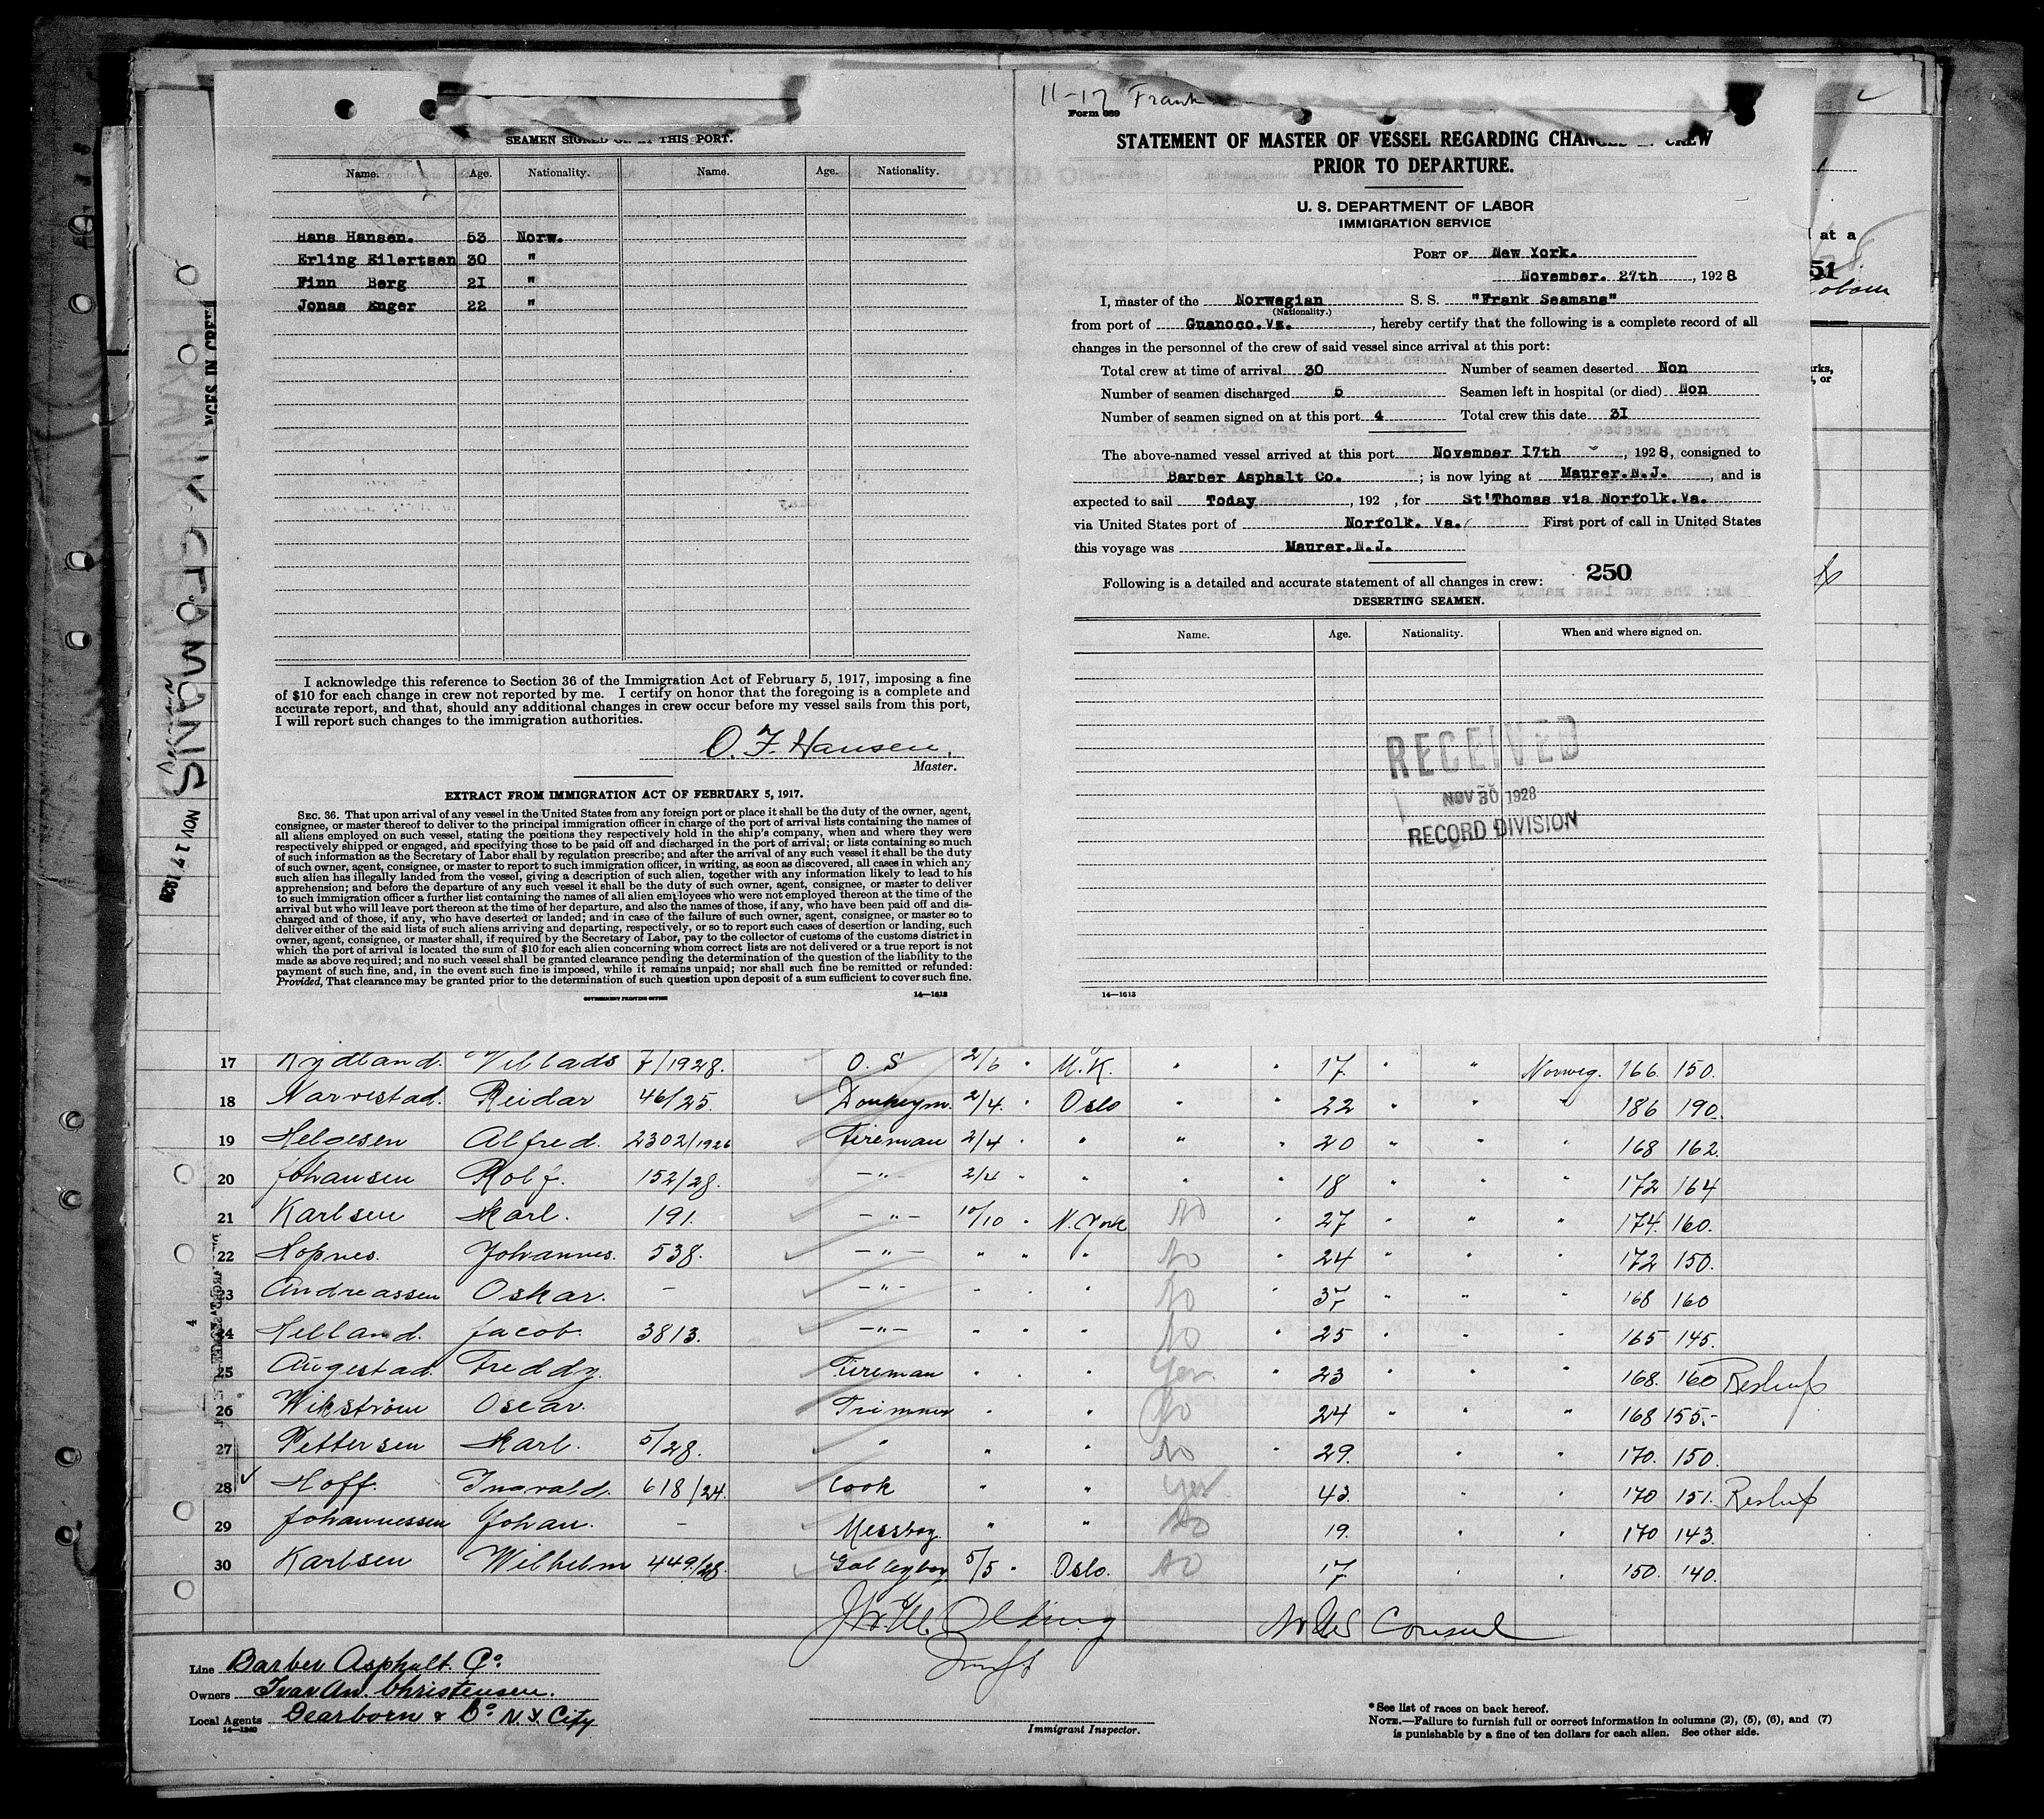 SEAMEN SIGNED ON AT THIS PORT.
Name. Age. Nationality. Name. Age. Nationality.
Hans Hansen. 53 Norw.
Erling Eilertsen 30 "
Finn Berg 21 "
Jonas Enger 22 "
I acknowledge this reference to Section 36 of the Immigration Act of February 5, 1917, imposing a fine
of $10 for each change in crew not reported by me. I certify on honor that the foregoing is a complete and
accurate report, and that, should any additional changes in crew occur before my vessel sails from this port,
I will report such changes to the immigration authorities.
O. F. Hansen.
Master.
EXTRACT FROM IMMIGRATION ACT OF FEBRUARY 5, 1917.
SEC. 36. That upon arrival of any vessel in the United States from any foreign port or place it shall be the duty of the owner, agent,
consignee, or master thereof to deliver to the principal immigration officer in charge of the port of arrival lists containing the names of
all aliens employed on such vessel, stating the positions they respectively hold in the ship's company, when and where they were
respectively shipped or engaged, and specifying those to be paid off and discharged in the port of arrival; or lists containing so much
of such information as the Secretary of Labor shall by regulation prescribe; and after the arrival of any such vessel it shall be the duty
of such owner, agent, consignee, or master to report to such immigration officer, in writing, as soon as discovered, all cases in which any
such alien has illegally landed from the vessel, giving a description of such alien, together with any information likely to lead to his
apprehension; and before the departure of any such vessel it shall be the duty of such owner, agent, consignee, or master to deliver
to such immigration officer a further list containing the names of all alien employees who were not employed thereon at the time of the
arrival but who will leave port thereon at the time of her departure, and also the names of those, if any, who have been paid off and dis-
charged and of those, if any, who have deserted or landed; and in case of the failure of such owner, agent, consignee, or master so to
deliver either of the said lists of such aliens arriving and departing, respectively, or so to report such cases of desertion or landing, such
owner, agent, consignee, or master shall, if required by the Secretary of Labor, pay to the collector of customs of the customs district in
which the port of arrival is located the sum of $10 for each alien concerning whom correct lists are not delivered or a true report is not
made as above required; and no such vessel shall be granted clearance pending the determination of the question of the liability to the
payment of such fine, and, in the event such fine is imposed, while it remains unpaid; nor shall such fine be remitted or refunded:
Provided, That clearance may be granted prior to the determination of such question upon deposit of a sum sufficient to cover such fine.
GOVERNMENT PRINTING OFFICE 14—1613
11-17 Frank
Form 689
STATEMENT OF MASTER OF VESSEL REGARDING CHANGES IN CREW
PRIOR TO DEPARTURE.
U. S. DEPARTMENT OF LABOR
IMMIGRATION SERVICE
PORT OF New York.
November. 27th, 1928
I, master of the Norwegian S. S. "Frank Seamans"
(Nationality.)
from port of Guanoco.Vz., hereby certify that the following is a complete record of all
changes in the personnel of the crew of said vessel since arrival at this port:
Total crew at time of arrival 30 Number of seamen deserted Non
Number of seamen discharged 5 Seamen left in hospital (or died) Non
Number of seamen signed on at this port 4 Total crew this date 31
The above-named vessel arrived at this port November 17th, 1928, consigned to
Barber Asphalt Co.; is now lying at Maurer.N.J., and is
expected to sail Today, 192 , for St'Thomas via Norfolk.Va.
via United States port of Norfolk. Va. First port of call in United States
this voyage was Maurer.N.J.
Following is a detailed and accurate statement of all changes in crew: 250
DESERTING SEAMEN.
Name. Age. Nationality. When and where signed on.
RECEIVED
NOV 30 1928
RECORD DIVISION
14—1613
at a
51
NOV 17 1928
17 Rydland. Villads 7/1928. O. S 2/6 " M.K. " " 17. " " Norweg. 166. 150.
18 Narvestad. Reidar 46/25. Donkeym. 2/4. " Oslo " " 22 " " " 186 190.
19 Helgesen Alfred. 2302/1926 Fireman 2/4 " " " " 20 " " " 168 162.
20 Johansen Rolf. 152/28. —"— 2/4 " " " " 18 " " " 172 164
21 Karlsen Karl. 191. —"— 10/10 " N. York No " 27 " " " 174. 160.
22 Hopnes. Johannes. 538. —"— " " " No " 24 " " " 172 150.
23 Andreassen Oskar. — —"— " " " No " 35 " " " 168 160
24 Helland. Jacob. 3813. —"— " " " No " 25 " " " 165 145.
25 Augestad. Freddy. Fireman " " " Yes. " 23 " " " 168. 160 Reship
26 Wikstrøm Oscar. Trimmer " " No " 24 " " " 168 155.-
27 Pettersen Karl. 5/28. " " " No " 29. " " 170. 150.
28 Hoff. Ingvald. 618/24. Cook " " Yes 43. " " 170 151. Reship
29 Johannessen Johan. — Messboy. " " No 19. " " 170 143.
30 Karlsen Wilhelm 449/28. Galleyboy 5/5 " Oslo. No 17. " " 150. 140.
Consul
Line Barber Asphalt. Co.
Owners Ivar An. Christensen.
Local Agents Dearborn & Co. N.Y. City
14—1240
Immigrant Inspector.
* See list of races on back hereof.
NOTE.—Failure to furnish full or correct information in columns (2), (5), (6), and (7)
is punishable by a fine of ten dollars for each alien. See other side.